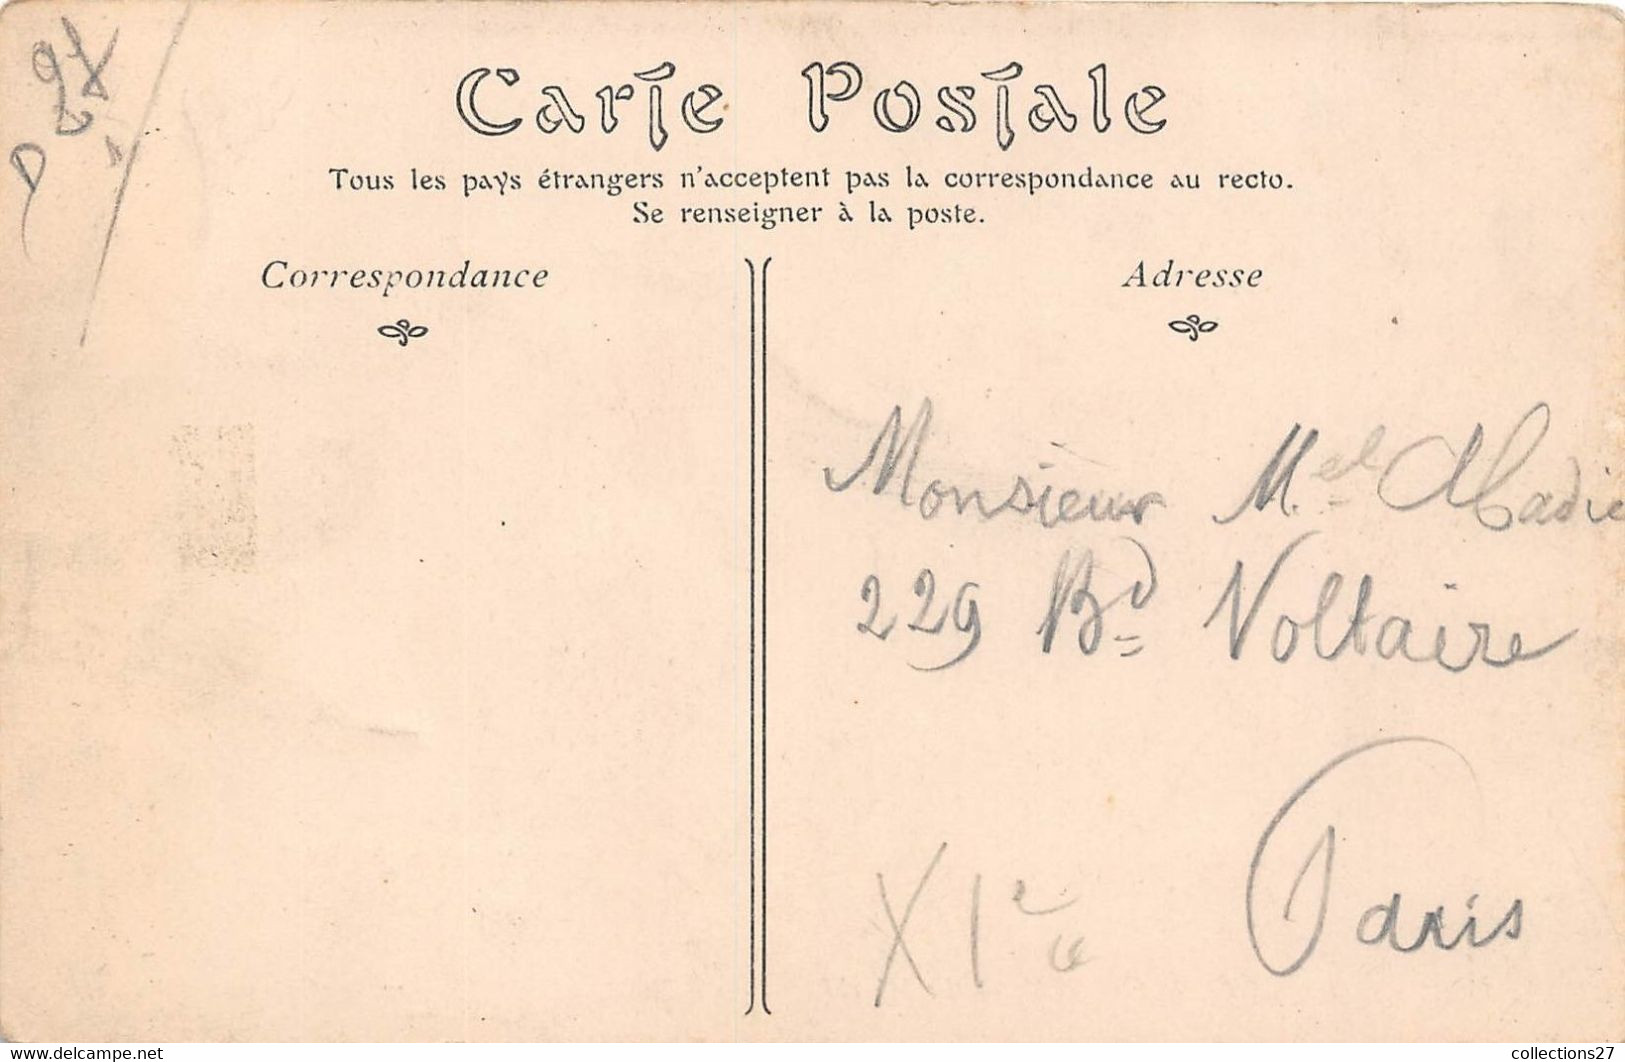 Carte Postale
Tous les pays étrangers n'acceptent pas la correspondance au recto.
Se renseigner à la poste.
Correspondance
Adresse
Monsieur M.el
229 Bd Voltaire
Paris
XIe
www.delcampe.net
collections27